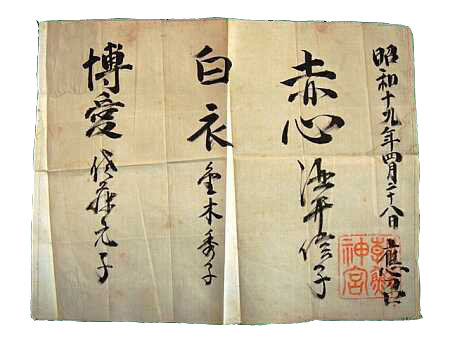 昭和十九年四月二十八日 應召
神宮
赤心 井子
白衣 木秀子
博愛 藤元子